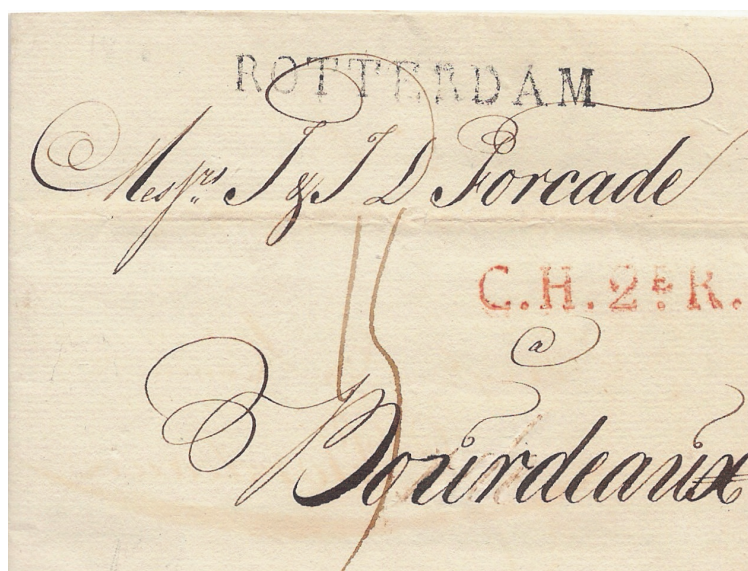 ROTTERDAM
Messrs J & J D Forcade
15
C.H.2E R.
a
Bourdeaux